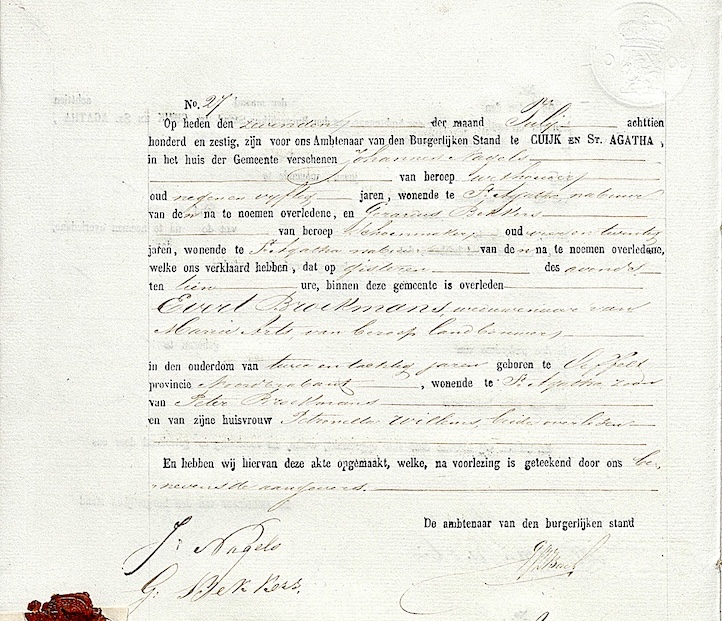 No. 27
Op heden den zevenden der maand Julij achttien
honderd en zestig, zijn voor ons Ambtenaar van den Burgerlijken Stand te CUIJK EN ST. AGATHA,
in het huis der Gemeente verschenen Johannes Nagels
van beroep landbouwer
oud negen en vyftig jaren, wonende te St. Agatha, nabuur
van den na te noemen overledene, en Gerardus Bekkers
van beroep Schoenmaker, oud en twintig
jaren, wonende te St. Agatha nabuur van den na te noemen overledene,
welke ons verklaard hebben, dat op gisteren des avonds
ten tien ure, binnen deze gemeente is overleden
Evert Broekmans, weduwenaar van
Maria Arts, van beroep landbouwer
in den ouderdom van twee en tachtig jaren geboren te Oeffelt
provincie Noordbrabant, wonende te St. Agatha, zoon
van Peter Broekmans
en van zijne huisvrouw Petronella Willems, beide overleden
En hebben wij hiervan deze akte opgemaakt, welke, na voorlezing is geteekend door ons be-
nevens de aangevers.
De ambtenaar van den burgerlijken stand
J: Nagels
G: Bekkers.